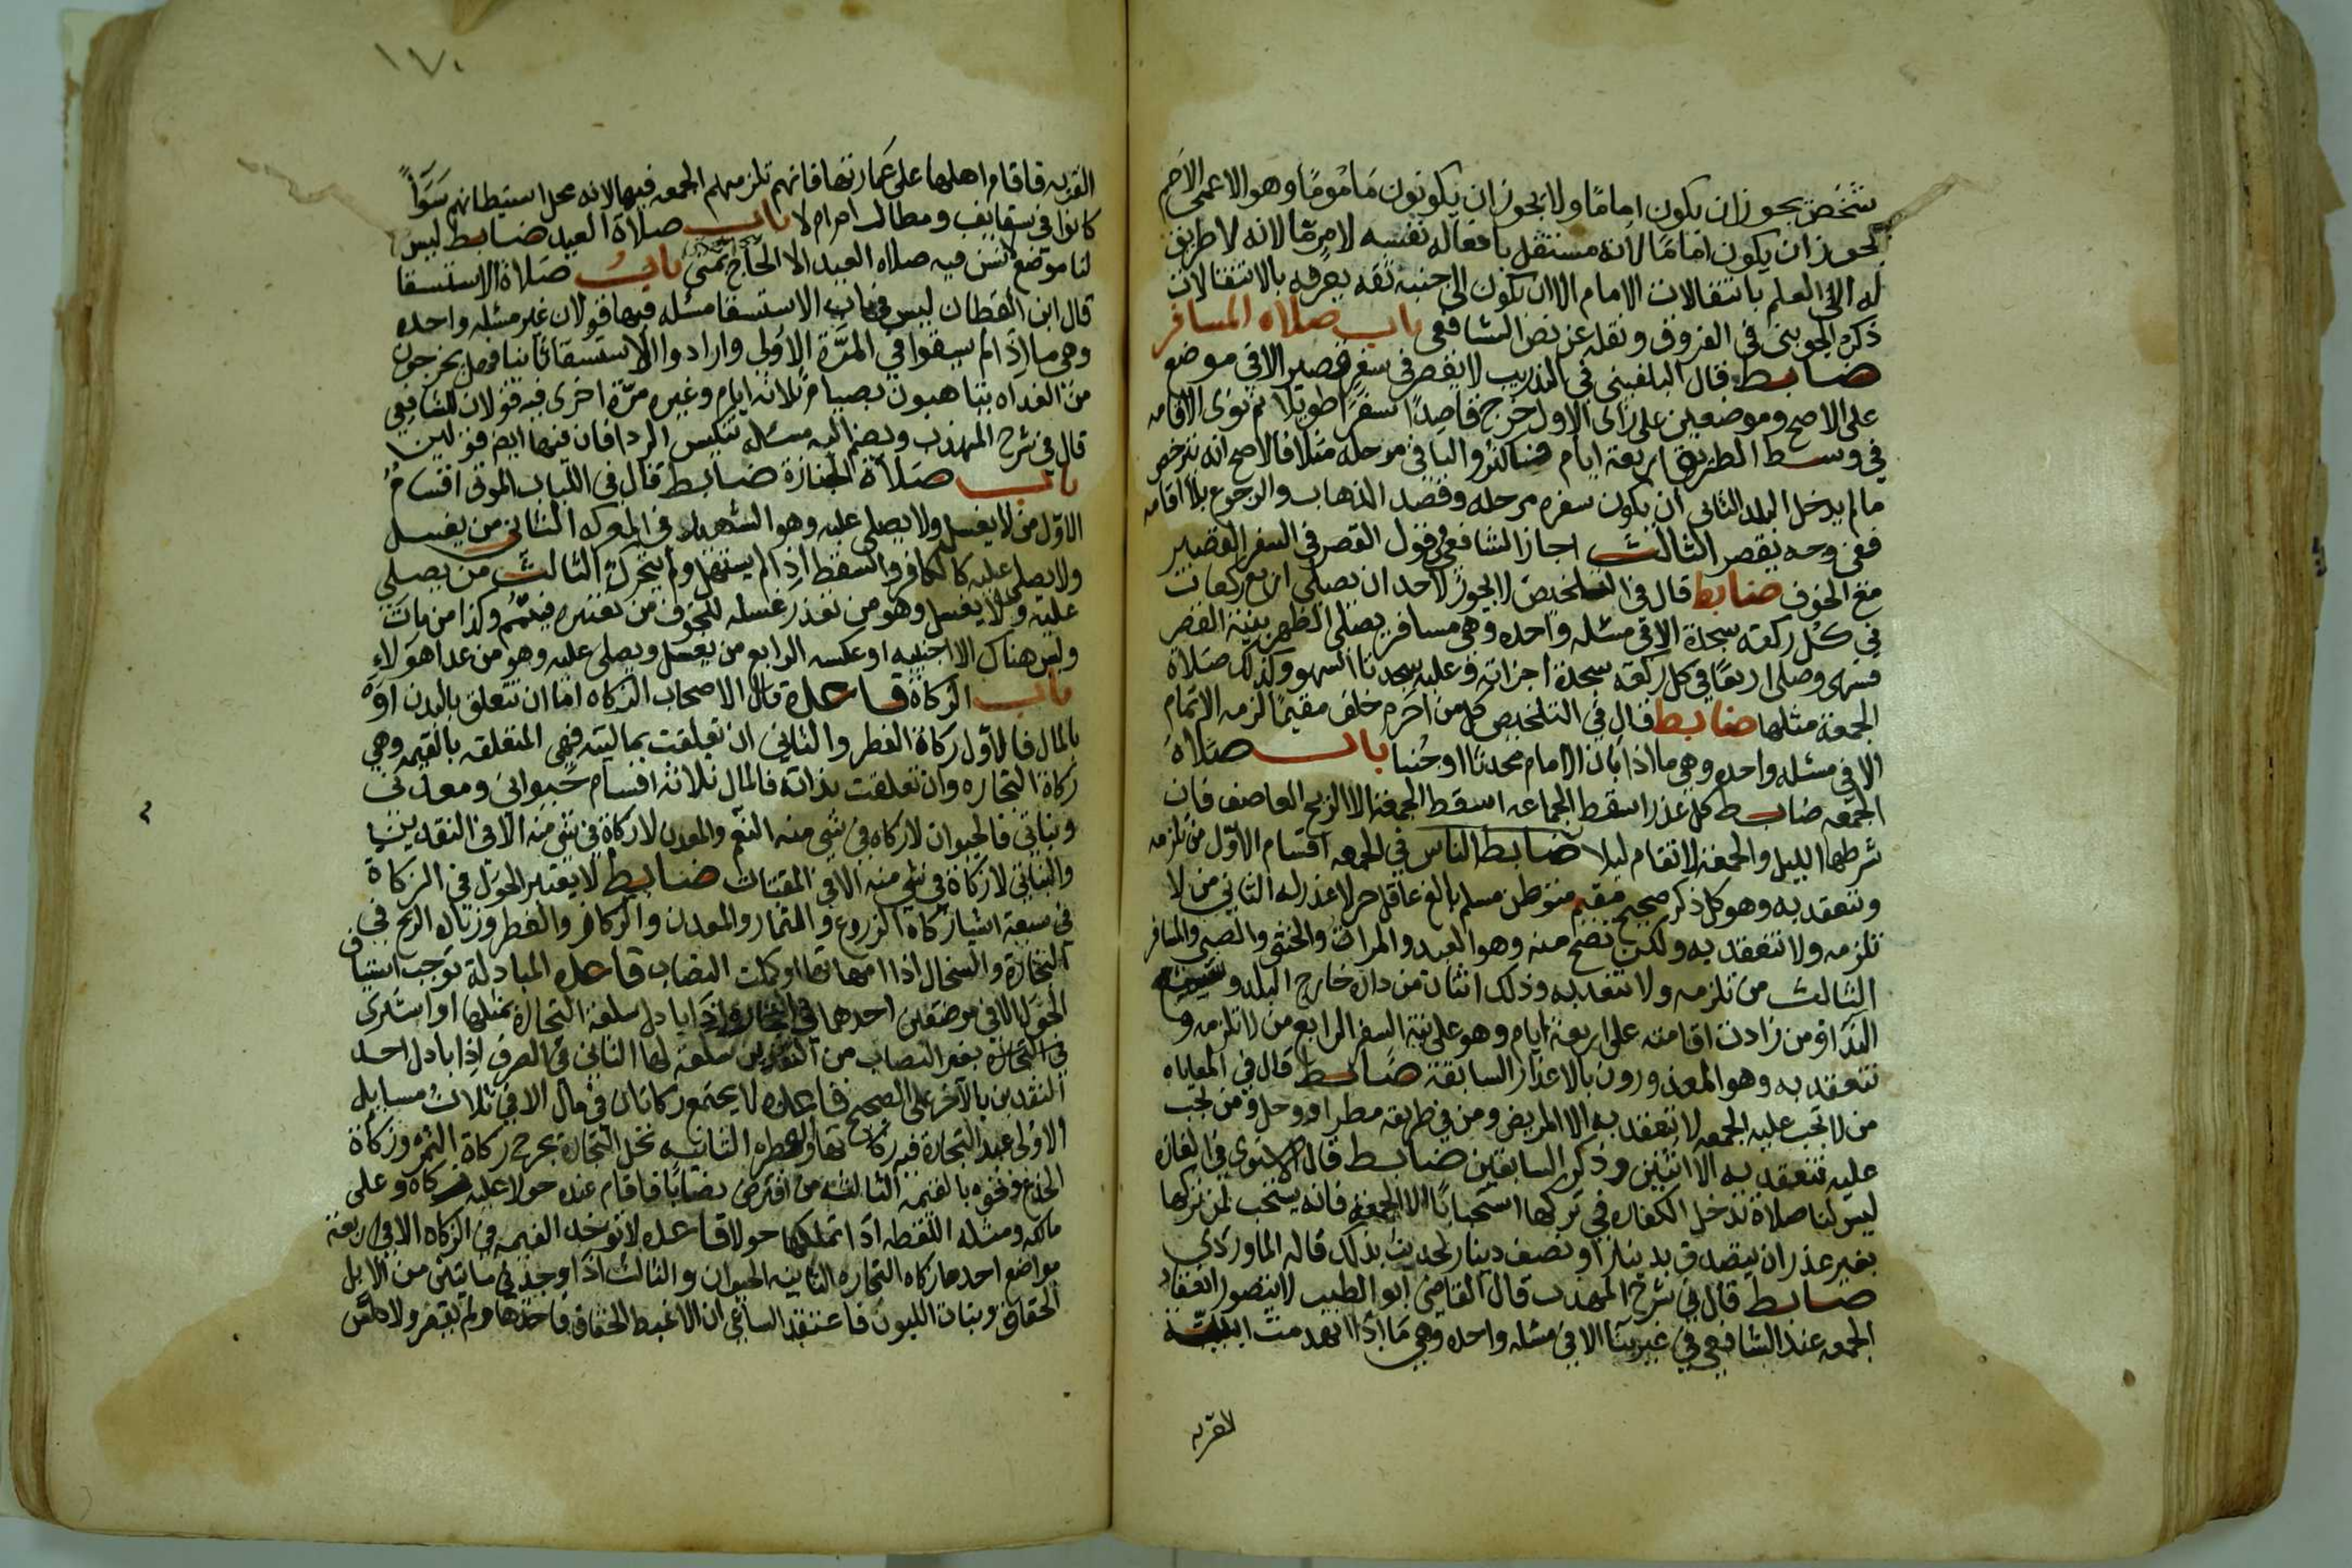 شخص يجوز ان يكون اماما ولا يجوز ان يكون مأمومًا وهو الاعمى الاصم
يجوز ان يكون امامًا لانه مستقل بافعاله نفسه لا مومّا لانه لا طريق
له الى العلم بانتقالات الامام الا ان يكون الى جنبه ثقه يعرفه بالانتقالات
ذكره الجويني في الفروق ونقله عن نص الشافعي باب صلاه المسافر
ضابط قال البلقيني في التدريب لا يقصر في سفر قصير الا في موضع
على الاصح وموضعين على راى الاول خرج قاصدًا سفرًا طويلا ثم نوى الاقامه
في وسط الطريق اربعة ايام فاكثر والباقي مرحله مثلا فالاصح انه يترخص
ما لم يدخل البلد الثاني ان يكون سفره مرحله وقصد الذهاب والرجوع بلا اقامه
ففي وجه يقصر الثالث اجاز الشافعي في قول القصر في السفر القصير
مع الخوف ضابط قال في التلخيص لا يجوز لاحد ان يصلي اربع ركعات
في كل ركعه سجدة الا في مسئله واحده وهي مسافر يصلي الظهر بنية القصر
فسهى وصلى اربعًا في كل ركعه سجدة اجزاته وعليه سجدتا السهو وكذلك صلاة
الجمعة مثلها ضابط قال في التلخيص كل من احرم خلف مقيم لزمه الاتمام
الا في مسئله واحده وهي ما اذا بان الامام محدثا او جنبا باب صلاة
الجمعه ضابط كل عذر اسقط الجماعه اسقط الجمعة الا الريح العاصف فان
شرطها الليل والجمعة لا تقام ليلا ضابط الناس في الجمعه اقسام الاول من تلزمه
وتنعقد به وهو كل ذكر صحيح مقيم متوطن مسلم بالغ عاقل حر لا عذر له الثاني من لا
تلزمه ولا تنعقد به ولكن تصح منه وهو العبد والمراة والخنثى والصبي والمسافر
الثالث من تلزمه ولا تنعقد به وذلك اثنان من داره خارج البلد وسمع
النداء ومن زادت اقامته على اربعة ايام وهو على نية السفر الرابع من لا تلزمه و
تنعقد به وهو المعذورون بالاعذار السابقة ضابط قال في المعاياه
من لا تجب عليه الجمعه لا تنعقد به الا المريض ومن في طريقه مطر او وحل ومن تجب
عليه تنعقد به الا اثنين وذكر السابقين ضابط قال الاسنوي في الغازه
ليس لنا صلاة تدخل الكفاره في تركها استحبابًا الا الجمعة فانه يستحب لمن تركها
بغير عذر ان يتصدق بدينار او نصف دينار لحديث بذلك قاله الماوردي
ضابط قال في شرح المهذب قال القاضي ابو الطيب لا يتصور انعقاد
الجمعه عند الشافعي في غير بنا الا في مسئله واحده وهي ما اذا انهدمت ابنية
القريه
١٧٠
القريه فاقام اهلها على عمارتها فانهم تلزمهم الجمعه فيها لانه محل استيطانهم سَوَاءً
كانوا في سقايف ومظال ام لا باب صلاة العيد ضابط ليس
لنا موضع لا تسن فيه صلاه العيد الا الحاج بمنى باب صلاة الاستسقا
قال ابن القطان ليس في باب الاستسقا مسئله فيها قولان غير مسئله واحده
وهي ما اذا لم يسقوا في المرّة الاولى وارادوا الاستسقا ثانيا فهل يخرجون
من الغد او يتاهبون بصيام ثلاثه ايام وغيره مرّة اخرى فيه قولان للشافعي
قال في شرح المهذب ويضم اليه مسئله تنكيس الردا فان فيها ايضا قولين
باب صلاة الجنازة ضابط قال في اللباب الموتى اقسام
الاوّل من لا يغسل ولا يصلى عليه وهو الشهيد في المعركه الثاني من يغسل
ولا يصلى عليه كالكافر والسقط اذا لم يستهل ولم يتحرك الثالث من يصلى
عليه ولا يغسل وهو من تعذر غسله للخوف من تفتيته فيتيمم وكذا من مات
وليس هناك الا اجنبيه او عكسه الرابع من يغسل ويصلى عليه وهو من عدا هولاء
باب الزكاة قاعدة قال الاصحاب الزكاه اما ان تتعلق بالبدن او
بالمال فالاول زكاة الفطر والثاني ان تعلقت بماليته فهي المتعلقه بالقيمه وهي
زكاة التجاره وان تعلقت بذاته فالمال ثلاثة اقسام حيواني ومعدني
ونباتي فالحيوان لا زكاه في شي منه الا النعم والمعدن لا زكاة في شي منه الا في النقدين
والنباتي لا زكاة في شي منه الا في المقتات ضابط لا يعتبر الحول في الزكاة
في سبعة اشيا زكاة الزروع والثمار والمعدن والركاز والفطر وزيادة الربح في
التجارة والسخال اذا ماتت امهاتها او كملت النصاب قاعده المبادلة توجب استيناف
الحول الا في موضعين احدهما في التجاره اذا بادل سلعة التجارة بمثلها او اشترى
في التجاره بعين النصاب من النقدين سلعة لها الثاني في الصرف اذا بادل احد
النقدين بالآخر على الصحيح قاعده لا يجتمع زكاتان في مال الا في ثلاث مسايل
الاولى عبد التجارة فيه زكاتها والفطره الثانيه نخل التجارة يخرج زكاة الثمر وزكاة
الجذع ونحوه بالقيمه الثالثه من اقترض نصابًا فاقام عنده حولا عليه زكاه وعلى
مالكه ومثله اللقطه اذا تملكها حولا قاعده لا توخذ القيمه في الزكاه الا في اربعة
مواضع احدها زكاه التجاره الثانيه الحيوان والثالث اذا وجد في مايتين من الابل
الحقاق وبنات اللبون فاعتقد الساعي ان الاغبط الحقاق فاخذها ولم يقصر ولا دلس